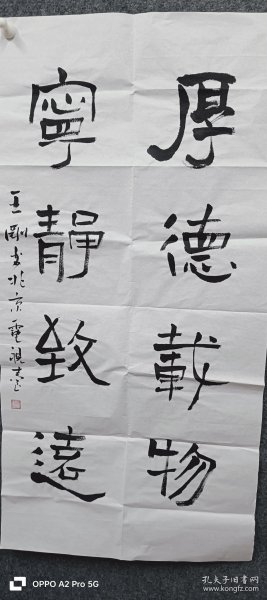 厚德載物
寧靜致遠
王剛書於京電視臺
OPPO A2 Pro 5G
孔夫子旧书网
www.kongfz.com